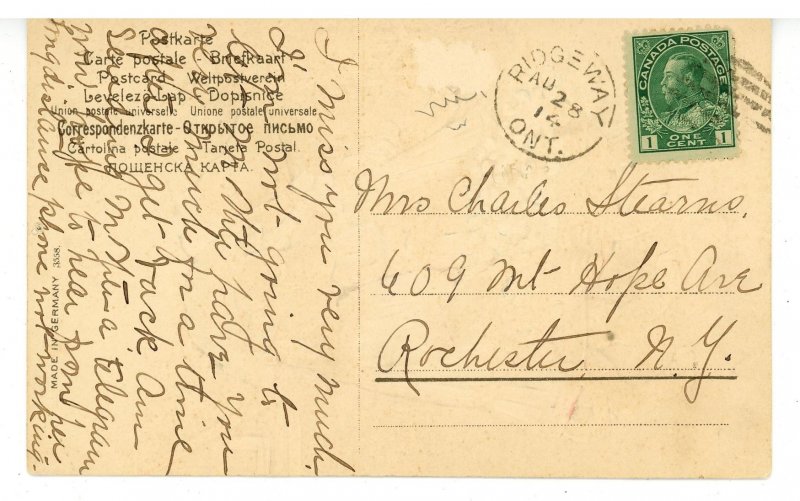 Postkarte
Carte postale - Briefkaart
Postcard Weltpostverein
Levelező-Lap - Dopisnice
Union postale universelle Unione postale universale
Correspondenzkarte - Открытое письмо
Cartolina postale - Tarjeta Postal.
ПОЩЕНСКА КАРТА.
MADE IN GERMANY 3558.
I miss you very much
I'm not going to
have you
very much for a time
get back Am
a telegram
hope to hear from you
long distance phone not working.
RIDGEWAY
AU 28
14
ONT.
CANADA POSTAGE
1 ONE CENT 1
Mrs Charles Stearns,
609 Mt Hope Ave
Rochester, N.Y.